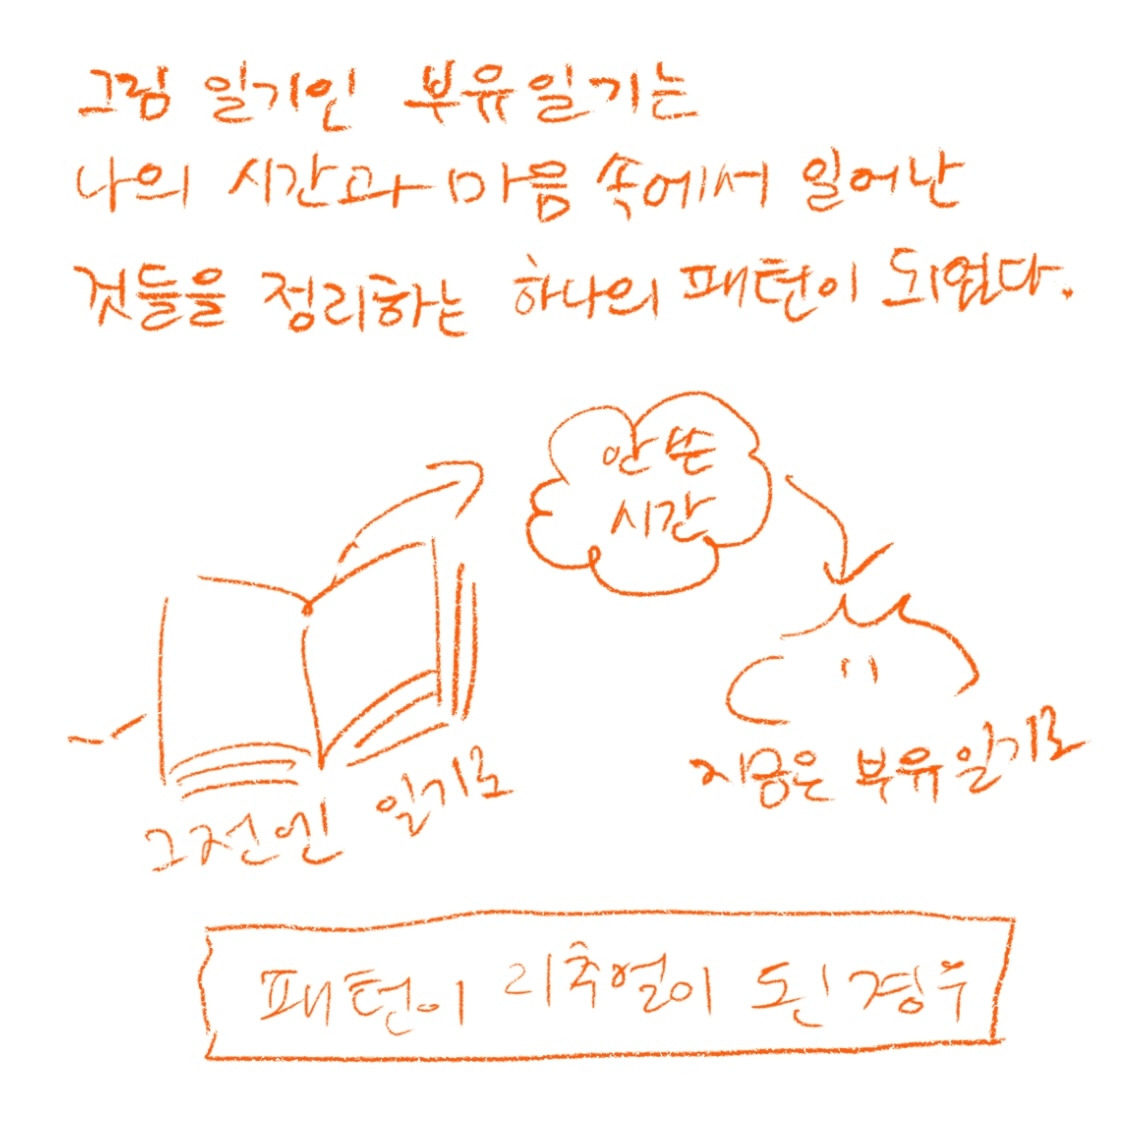 그림 일기인 부유일기는
나의 시간과 마음 속에서 일어난
것들을 정리하는 하나의 패턴이 되었다.
안 쓴
시간
그전엔 일기로
지금은 부유일기로
패턴이 리추얼이 된 경우